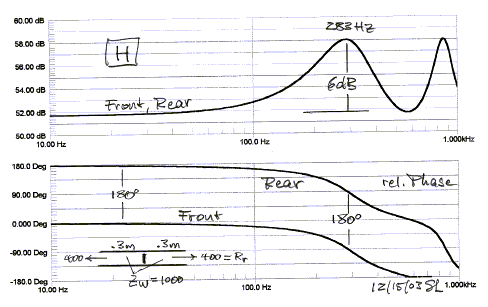 60.00 dB
283 Hz
58.00 dB
H
56.00 dB
6dB
54.00 dB
Front, Rear
52.00 dB
50.00 dB
10.00 Hz 100.0 Hz 1.000kHz
180.0 Deg
Rear rel. Phase
90.00 Deg
180°
Front
180°
0.000 Deg
.3m .3m
-90.00 Deg
400 400 = Rr
Zw=1000
-180.0 Deg
12/15/03 SL
10.00 Hz 100.0 Hz 1.000kHz